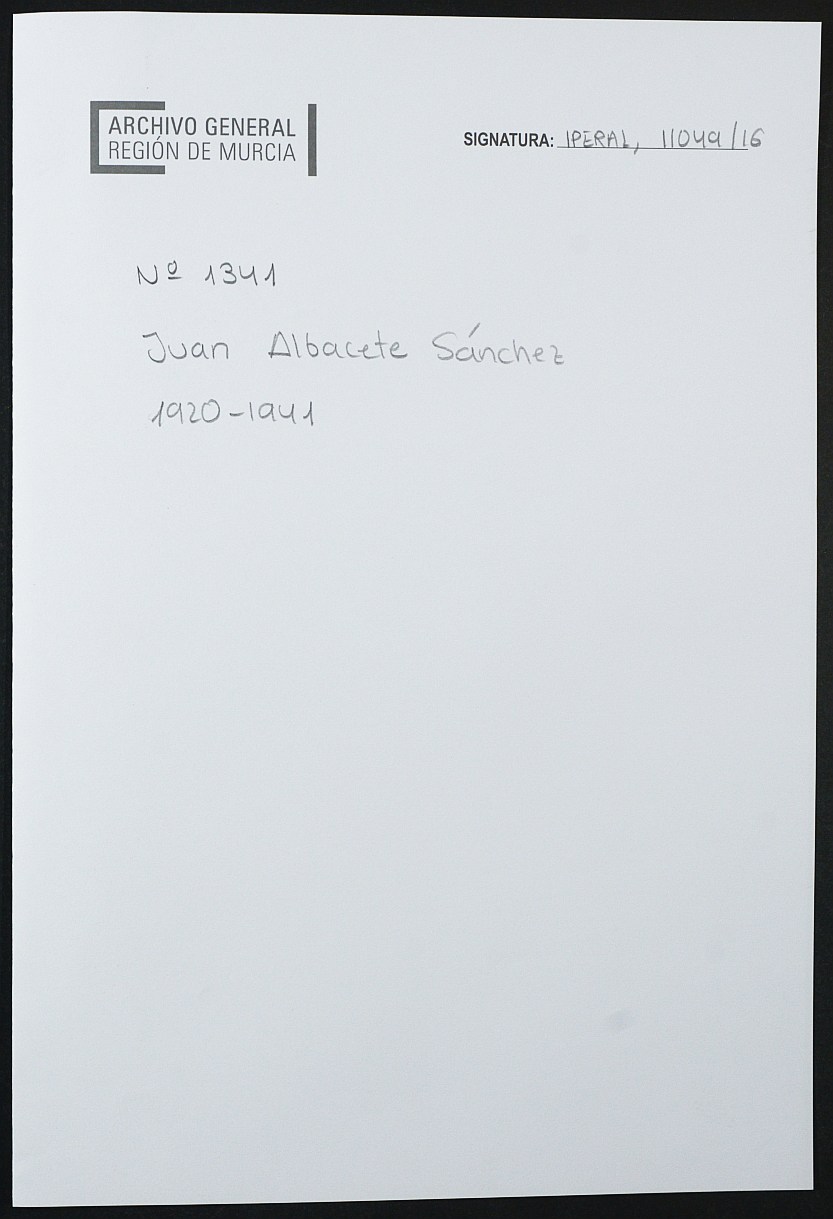 ARCHIVO GENERAL
REGIÓN DE MURCIA
SIGNATURA: IPERAL, 11049/16
Nº 1341
Juan Albacete Sánchez
1920-1941